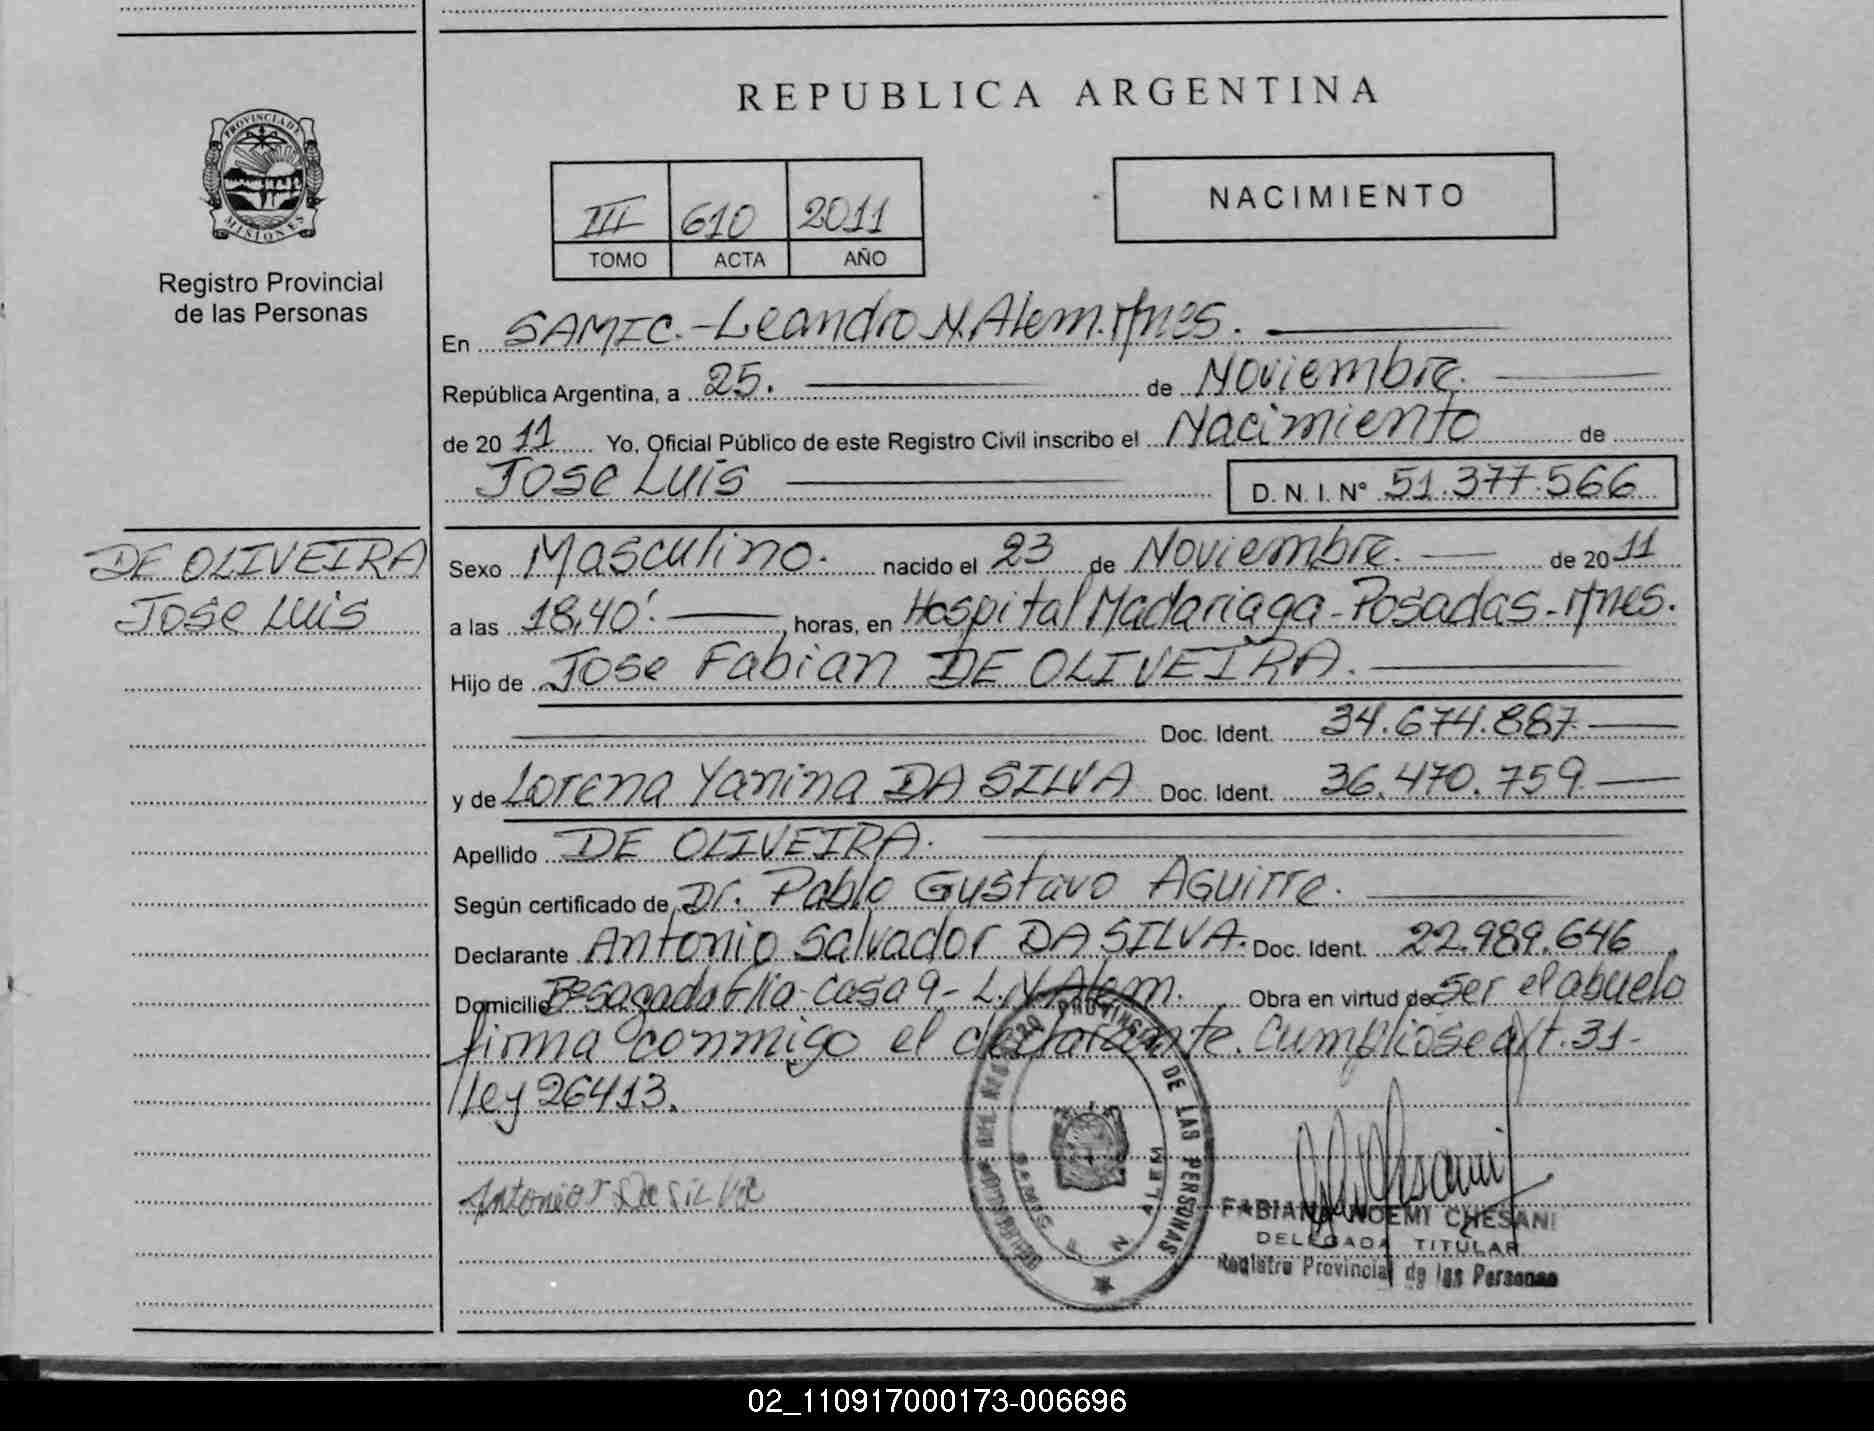 REPUBLICA ARGENTINA
PROVINCIA DE
MISIONES
Registro Provincial
de las Personas
III 610 2011
TOMO ACTA AÑO
NACIMIENTO
En SAMIC.-Leandro N. Alem. Mnes.
República Argentina, a 25. de Noviembre.
de 2011 Yo, Oficial Público de este Registro Civil inscribo el Nacimiento de
Jose Luis D. N. I. N° 51.377.566
DE OLIVEIRA
Jose Luis
Sexo Masculino. nacido el 23 de Noviembre. de 2011
a las 18,40'. horas, en Hospital Madariaga-Posadas-Mnes.
Hijo de Jose Fabian DE OLIVEIRA.
Doc. Ident. 34.674.887
y de Lorena Yanina DA SILVA Doc. Ident. 36.470.759
Apellido DE OLIVEIRA.
Según certificado de Dr. Pablo Gustavo Aguirre.
Declarante Antonio Salvador DA SILVA. Doc. Ident. 22.989.646
Domicilio Flia-Casa 9-L.N.Alem. Obra en virtud de ser el abuelo
firma conmigo el declarante. Cumpliose art. 31-
ley 26413.
PROVINCIAL DE LAS PERSONAS
N. ALEM
Antonio Da Silva
FABIANA NOEMI CHESANI
DELEGADA TITULAR
Registro Provincial de las Personas
02_110917000173-006696